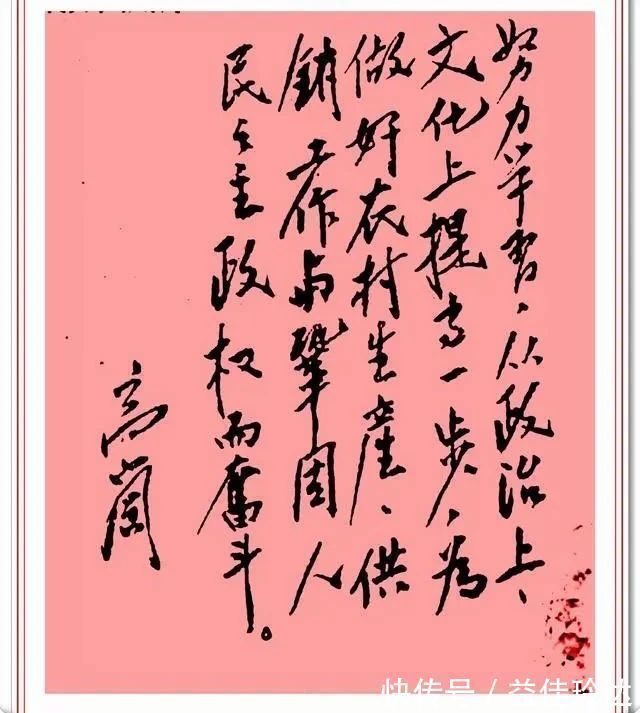 努力学习、从政治上、
文化上提高一步、為
做好农村生產、供
销工作与鞏固人
民主政权而奮斗。
高崗
快传号/益佳